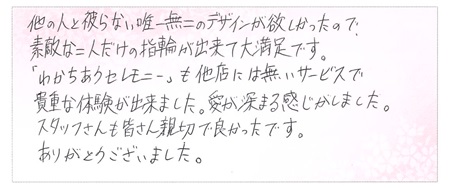 他の人と被らない唯一無二のデザインが欲しかったので、
素敵な二人だけの指輪が出来て大満足です。
「わかちあうセレモニー」も他店には無いサービスで
貴重な体験が出来ました。愛が深まる感じがしました。
スタッフさんも皆さん親切で良かったです。
ありがとうございました。